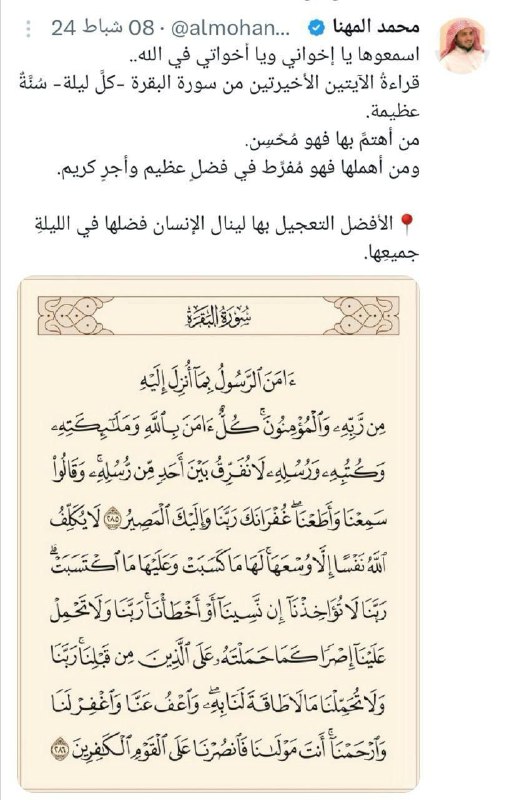 محمد المهنا @almohan... · 08 شباط 24
اسمعوها يا إخواني ويا أخواتي في الله..
قراءةُ الآيتين الأخيرتين من سورة البقرة -كلَّ ليلة- سُنَّةٌ
عظيمة.
من أهتمَّ بها فهو مُحْسِن.
ومن أهملها فهو مُفرِّط في فضلٍ عظيم وأجرٍ كريم.
📍 الأفضل التعجيل بها لينال الإنسان فضلها في الليلةِ
جميعِها.
سُورَةُ البَقَرَةِ
ءَامَنَ ٱلرَّسُولُ بِمَآ أُنزِلَ إِلَيْهِ
مِن رَّبِّهِۦ وَٱلْمُؤْمِنُونَۚ كُلٌّ ءَامَنَ بِٱللَّهِ وَمَلَـٰٓئِكَتِهِۦ
وَكُتُبِهِۦ وَرُسُلِهِۦ لَا نُفَرِّقُ بَيْنَ أَحَدٍ مِّن رُّسُلِهِۦۚ وَقَالُوا۟
سَمِعْنَا وَأَطَعْنَاۖ غُفْرَانَكَ رَبَّنَا وَإِلَيْكَ ٱلْمَصِيرُ ٢٨٥ لَا يُكَلِّفُ
ٱللَّهُ نَفْسًا إِلَّا وُسْعَهَاۚ لَهَا مَا كَسَبَتْ وَعَلَيْهَا مَا ٱكْتَسَبَتْۗ
رَبَّنَا لَا تُؤَاخِذْنَآ إِن نَّسِينَآ أَوْ أَخْطَأْنَاۚ رَبَّنَا وَلَا تَحْمِلْ
عَلَيْنَآ إِصْرًا كَمَا حَمَلْتَهُۥ عَلَى ٱلَّذِينَ مِن قَبْلِنَاۚ رَبَّنَا
وَلَا تُحَمِّلْنَا مَا لَا طَاقَةَ لَنَا بِهِۦۖ وَٱعْفُ عَنَّا وَٱغْفِرْ لَنَا
وَٱرْحَمْنَآۚ أَنتَ مَوْلَىٰنَا فَٱنصُرْنَا عَلَى ٱلْقَوْمِ ٱلْكَـٰفِرِينَ ٢٨٦